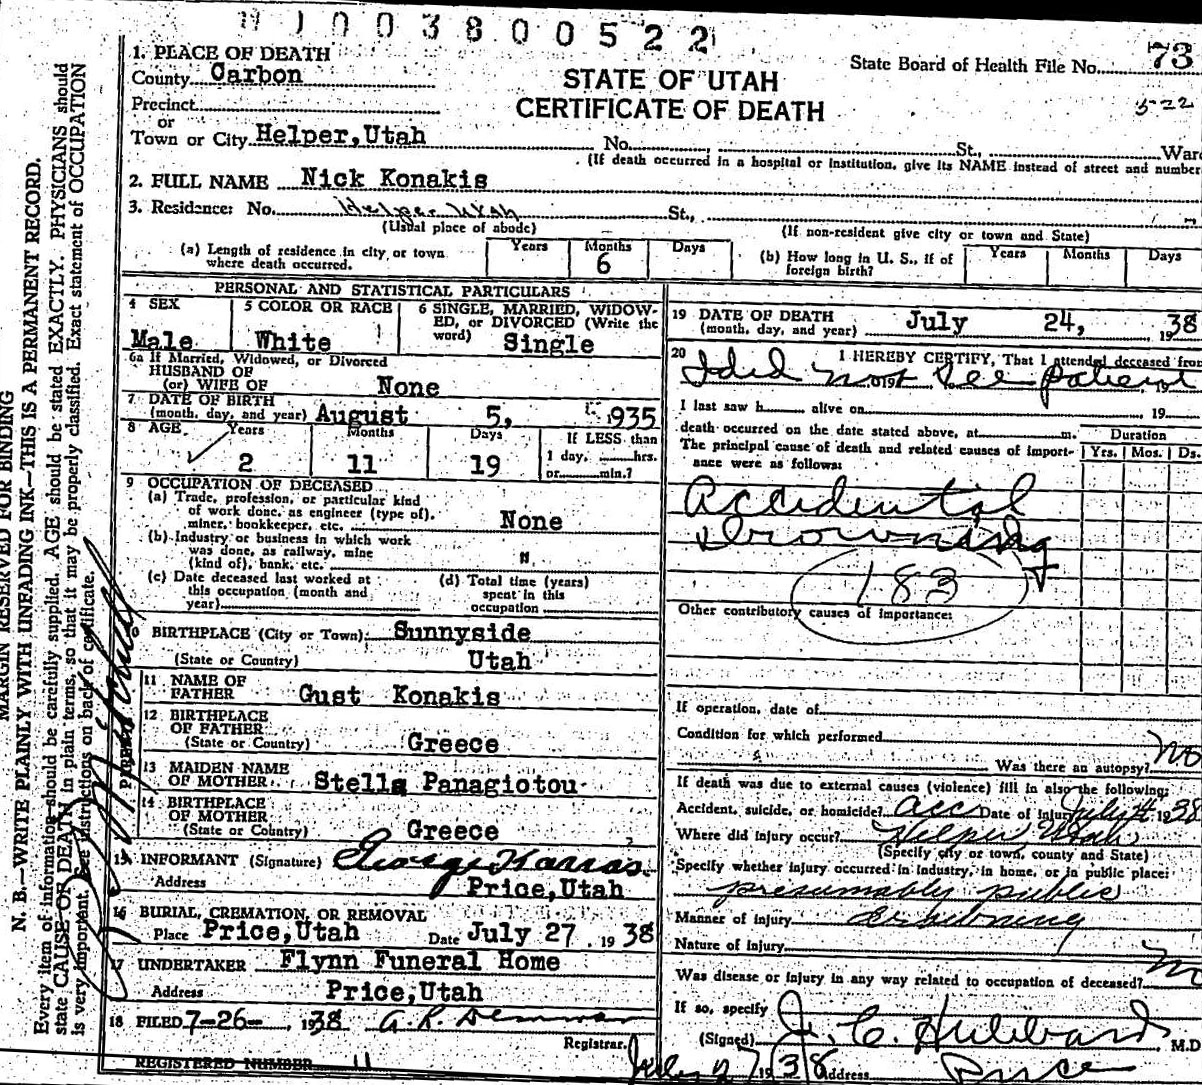 N J 0 0 3 8 0 0 5 2 2
1. PLACE OF DEATH
County Carbon
Precinct
or
Town or City Helper, Utah
STATE OF UTAH
CERTIFICATE OF DEATH
State Board of Health File No. 73
522
No. St., Ward
(If death occurred in a hospital or institution, give its NAME instead of street and number
2. FULL NAME Nick Konakis
3. Residence: No. Helper Utah St.,
(Usual place of abode) (If non-resident give city or town and State)
(a) Length of residence in city or town where death occurred. Years Months 6 Days
(b) How long in U. S., if of foreign birth? Years Months Days
PERSONAL AND STATISTICAL PARTICULARS
4 SEX Male
5 COLOR OR RACE White
6 SINGLE, MARRIED, WIDOW-
ED, or DIVORCED (Write the
word) Single
6a If Married, Widowed, or Divorced
HUSBAND OF
(or) WIFE OF None
7 DATE OF BIRTH
(month, day, and year) August 5, 1935
8 AGE Years Months Days If LESS than
1 day, hrs.
2 11 19 or min.?
9 OCCUPATION OF DECEASED
(a) Trade, profession, or particular kind
of work done, as engineer (type of),
miner, bookkeeper, etc. None
(b) Industry or business in which work
was done, as railway, mine
(kind of), bank, etc. "
(c) Date deceased last worked at
this occupation (month and
year)
(d) Total time (years)
spent in this
occupation
10 BIRTHPLACE (City or Town) Sunnyside
(State or Country) Utah
PARENTS
11 NAME OF
FATHER Gust Konakis
12 BIRTHPLACE
OF FATHER
(State or Country) Greece
13 MAIDEN NAME
OF MOTHER Stella Panagiotou
14 BIRTHPLACE
OF MOTHER
(State or Country) Greece
15 INFORMANT (Signature) George Karras
Address Price, Utah
16 BURIAL, CREMATION, OR REMOVAL
Place Price, Utah Date July 27, 1938
17 UNDERTAKER Flynn Funeral Home
Address Price, Utah
18 FILED 7-26- 1938
Registrar.
REGISTERED NUMBER 11
19 DATE OF DEATH
(month, day, and year) July 24, 1938
20 I HEREBY CERTIFY, That I attended deceased from
I did not see patient
19 , 19
I last saw h alive on , 19
death occurred on the date stated above, at m.
The principal cause of death and related causes of import-
ance were as follows:
Duration
Yrs. Mos. Ds.
Accidental
Drowning
183
Other contributory causes of importance:
If operation, date of
Condition for which performed
Was there an autopsy? No
If death was due to external causes (violence) fill in also the following:
Accident, suicide, or homicide? acc Date of injury July 24 1938
Where did injury occur? Helper Utah
(Specify city or town, county and State)
Specify whether injury occurred in industry, in home, or in public place:
presumably public
Manner of injury
Nature of injury
Was disease or injury in any way related to occupation of deceased?
If so, specify
(Signed) J. C. Hubbard, M.D
July 27 1938 Address Price
MARGIN RESERVED FOR BINDING
N. B.—WRITE PLAINLY WITH UNFADING INK—THIS IS A PERMANENT RECORD.
Every item of information should be carefully supplied. AGE should be stated EXACTLY. PHYSICIANS should
state CAUSE OF DEATH in plain terms, so that it may be properly classified. Exact statement of OCCUPATION
is very important. See instructions on back of certificate.